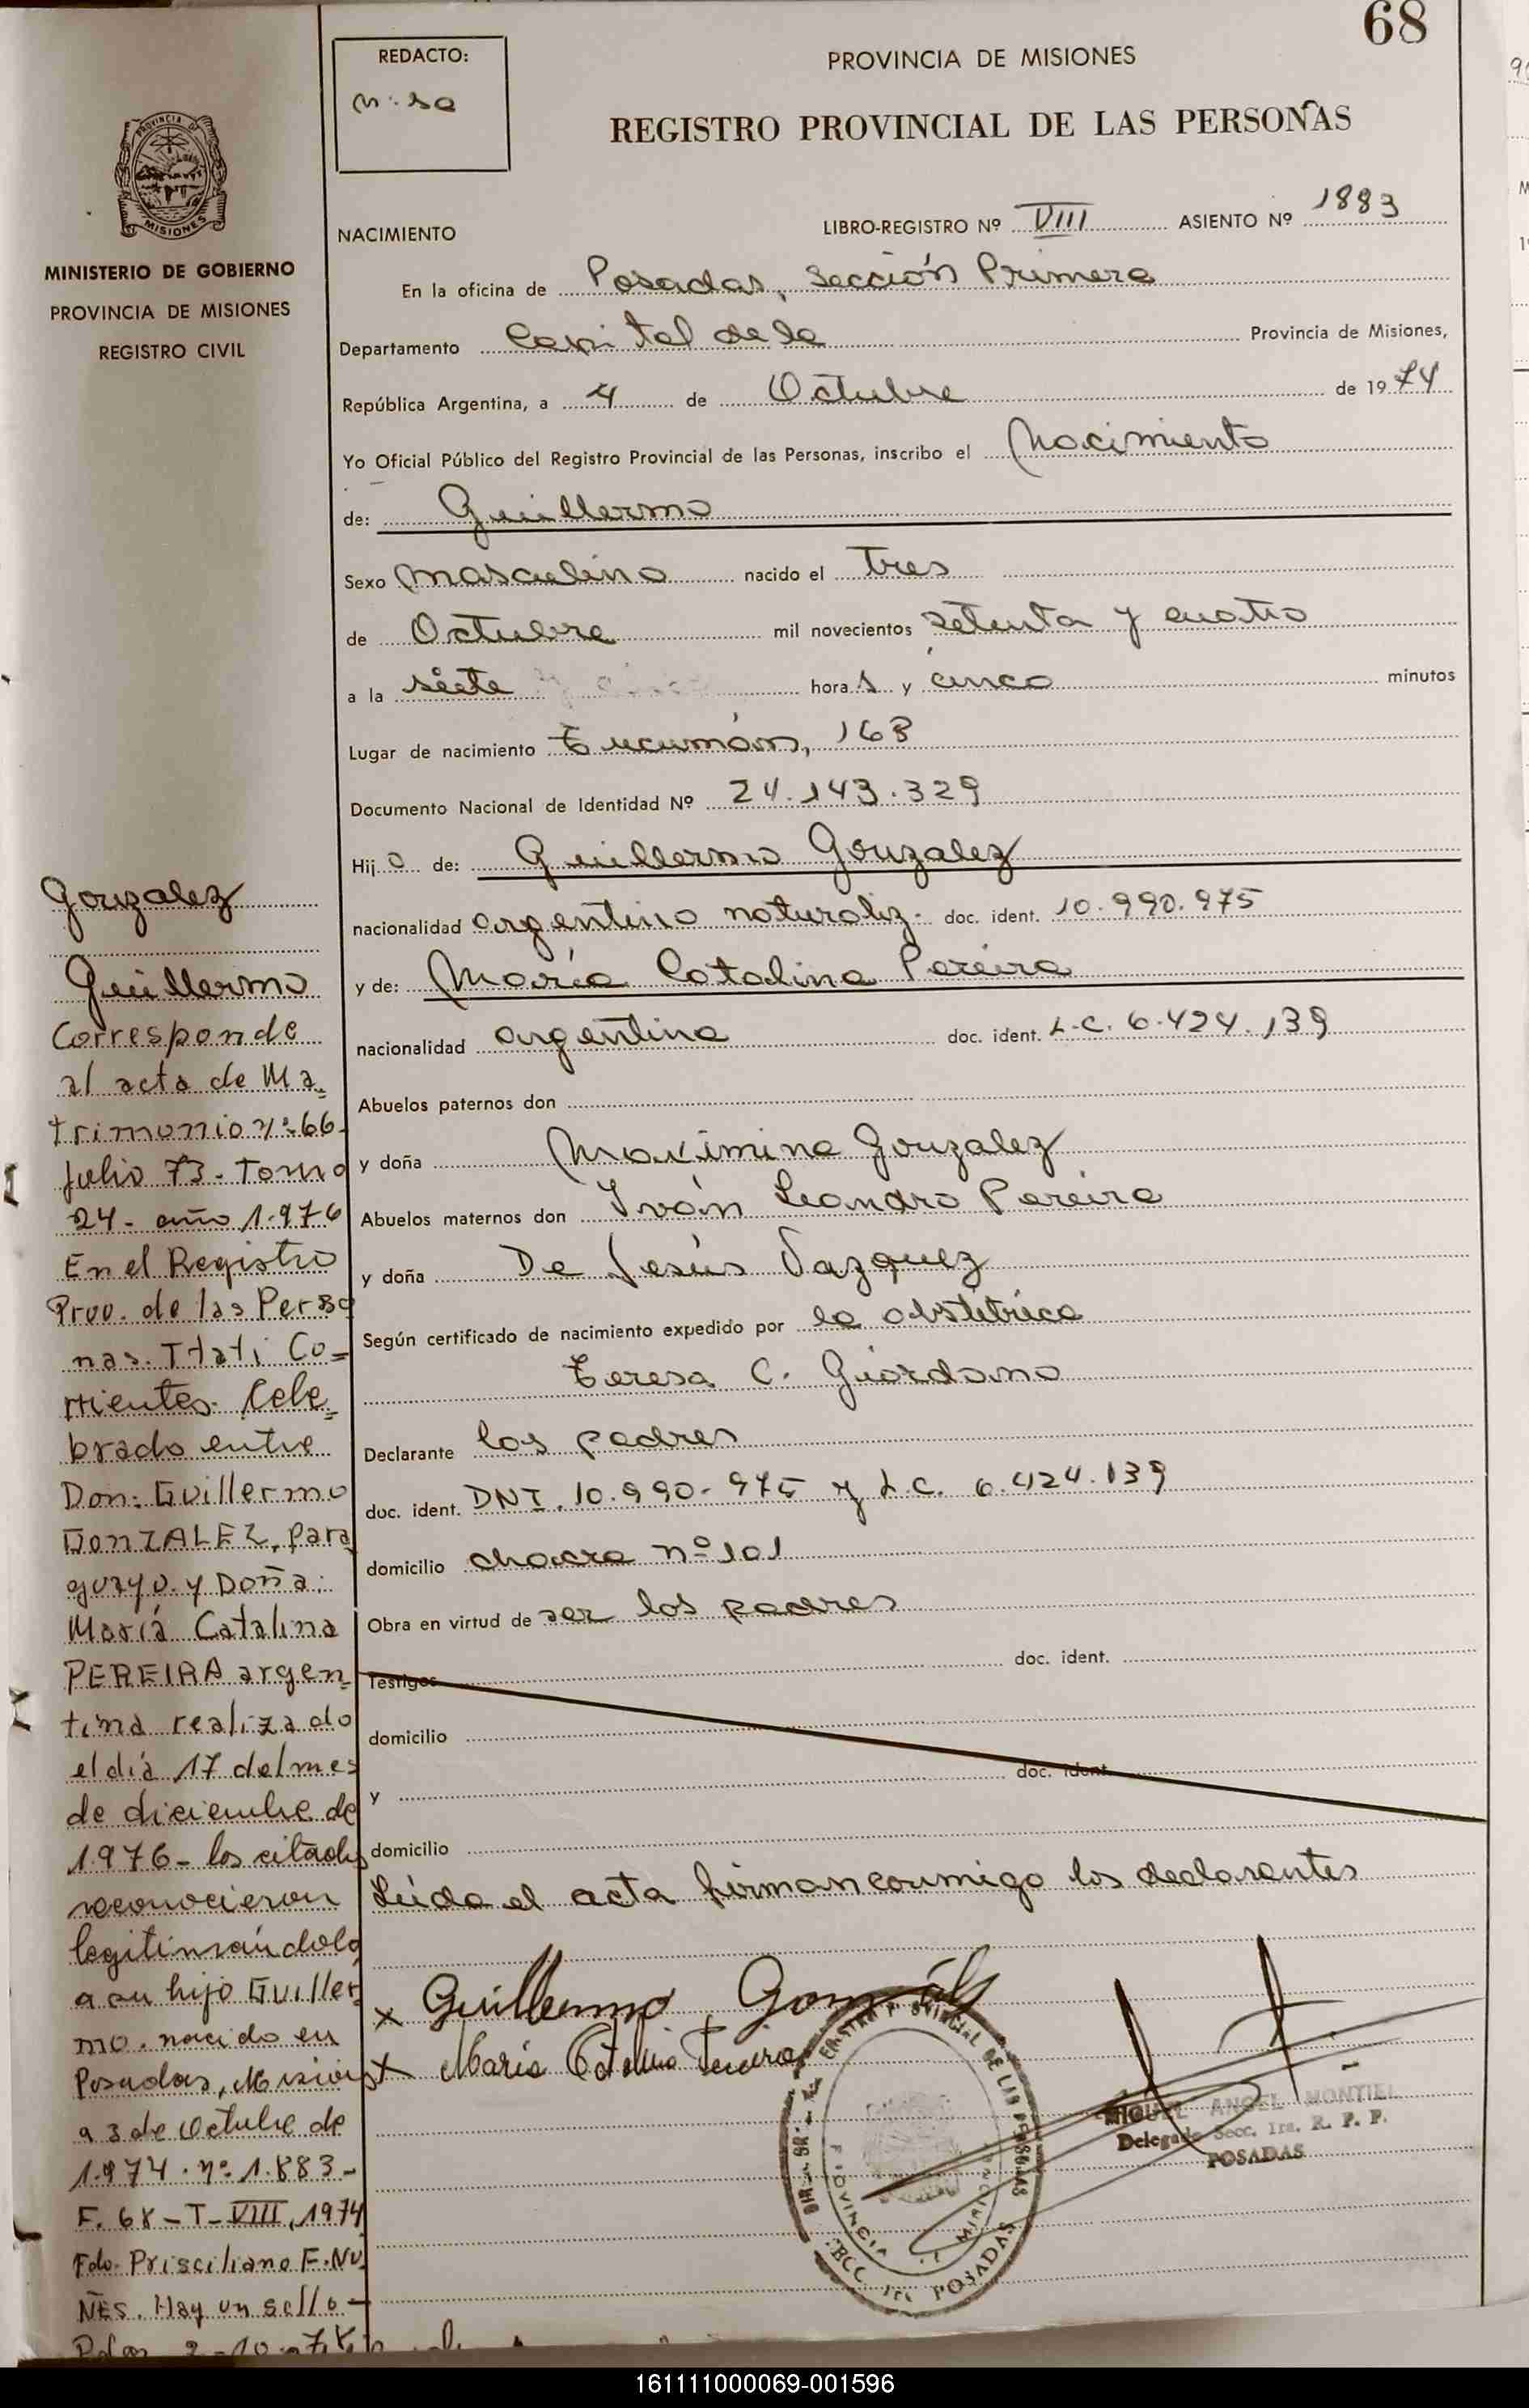 68
REDACTO:
PROVINCIA DE MISIONES
REGISTRO PROVINCIAL DE LAS PERSONAS
NACIMIENTO
LIBRO-REGISTRO Nº VIII ASIENTO Nº 1883
En la oficina de Posadas, Sección Primera
Departamento Capital de la Provincia de Misiones,
República Argentina, a 4 de Octubre de 1974
Yo Oficial Público del Registro Provincial de las Personas, inscribo el Nacimiento
de: Guillermo
Sexo masculino nacido el tres
de Octubre mil novecientos setenta y cuatro
a la siete horas y cinco minutos
Lugar de nacimiento Tucumán, 168
Documento Nacional de Identidad Nº 24.143.329
Hijo de: Guillermo Gonzalez
nacionalidad argentino naturaliz. doc. ident. 10.990.975
y de: María Catalina Pereira
nacionalidad argentina doc. ident. L.C. 6.424.139
Abuelos paternos don
y doña Maximina Gonzalez
Abuelos maternos don Iván Leandro Pereira
y doña De Jesús Vazquez
Según certificado de nacimiento expedido por la obstétrica
Teresa C. Giordano
Declarante los padres
doc. ident. DNI. 10.990.975 y L.C. 6.424.139
domicilio chacra nº 101
Obra en virtud de ser los padres
doc. ident.
Testigos
domicilio
doc. ident.
y
domicilio
Leída el acta firman conmigo los declarantes
x Guillermo Gonzalez
x María Catalina Pereira
PROVINCIA DE MISIONES
SECC. 1ra. POSADAS
MIGUEL ANGEL MONTIEL
Delegado Secc. 1ra. R. P. P.
POSADAS
PROVINCIA DE
MISIONES
MINISTERIO DE GOBIERNO
PROVINCIA DE MISIONES
REGISTRO CIVIL
Gonzalez
Guillermo
Corresponde
al acta de Ma-
trimonio nº 66-
Julio 73- Tomo
24- año 1.976
En el Registro
Prov. de las Perso
nas. Itatí Co=
rrientes. Cele=
brado entre
Don: Guillermo
GONZALEZ, para
guayo y Doña:
María Catalina
PEREIRA argen-
tina realizado
el día 17 del mes
de diciembre de
1.976- los citados
reconocieron
legitimándolo
a su hijo Guiller
mo. nacido en
Posadas, Misiones
a 3 de Octubre de
1.974. nº 1.883-
F. 68-T-VIII, 1974
Fdo. Prisciliano F. NU
ÑES. Hay un sello-
161111000069-001596